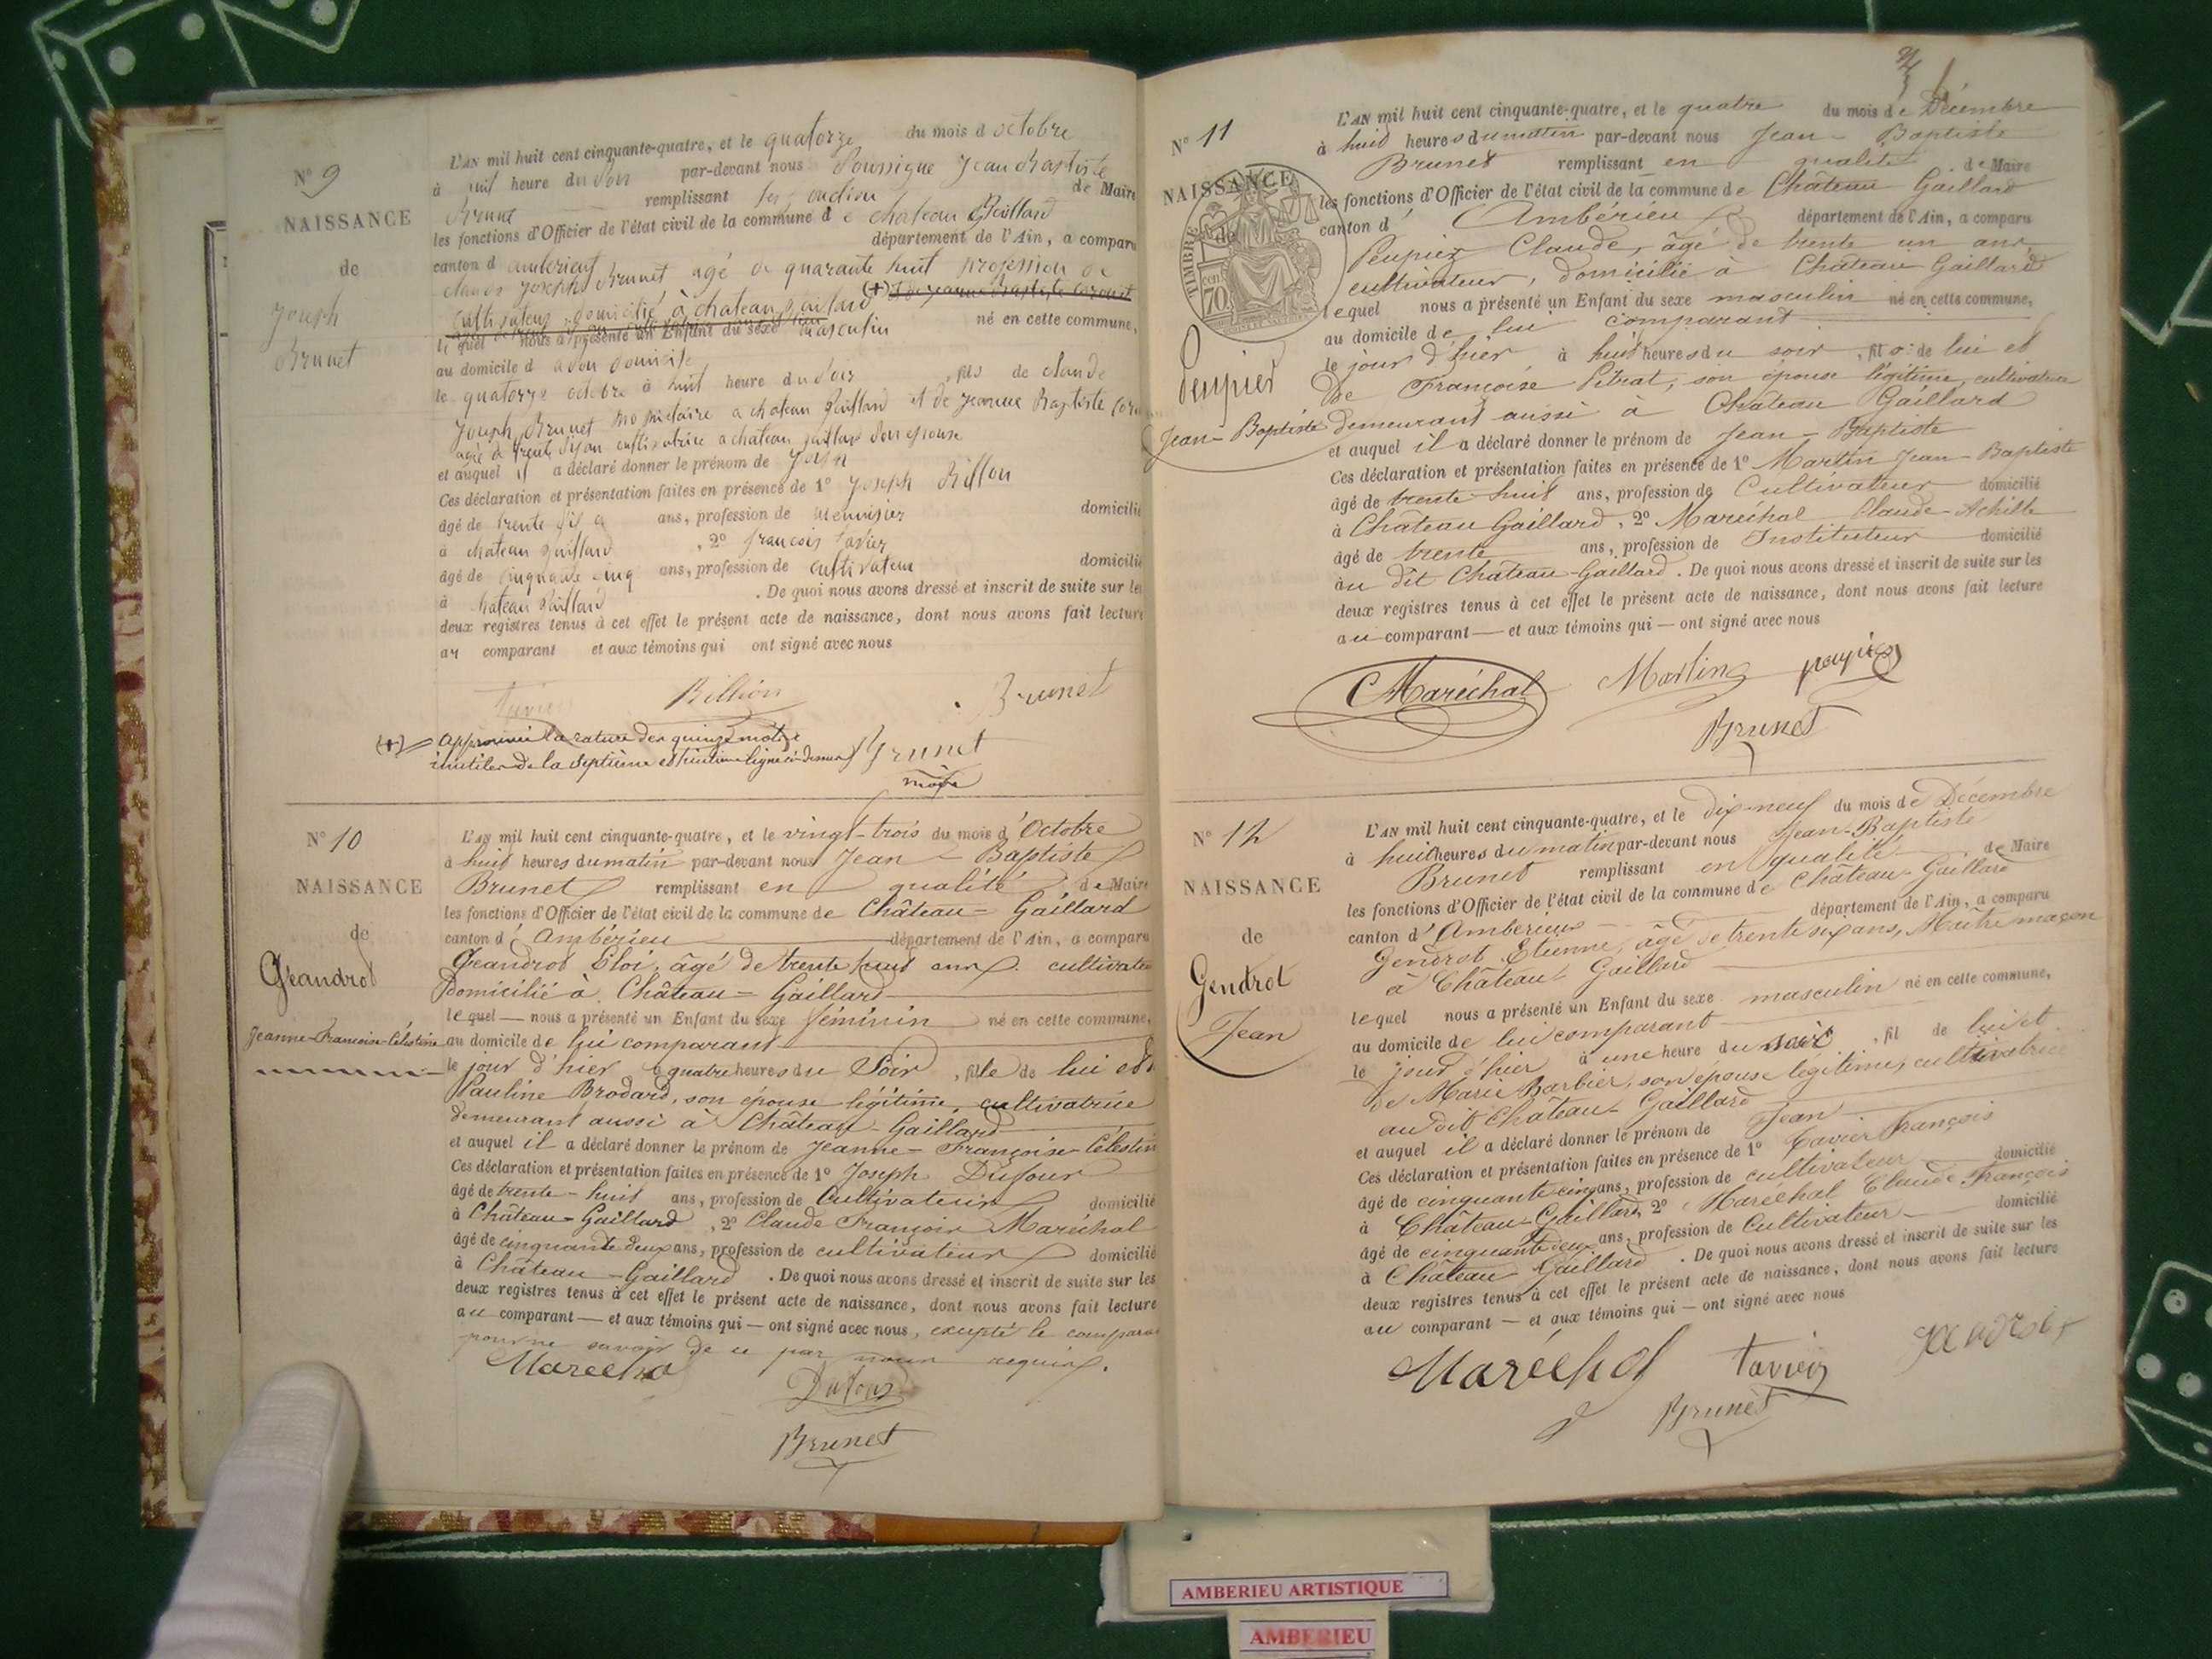 N° 9
NAISSANCE
de
Joseph
Brunet
L'AN mil huit cent cinquante-quatre, et le quatorze du mois d octobre
à huit heure du soir par-devant nous Soussigne Jean Baptiste
Brunet remplissant les de Maire
les fonctions d'Officier de l'état civil de la commune de chateau Gaillard
canton d amberieux département de l'Ain, a comparu
claude joseph Brunet agé de quarante huit profession de
cultivateur domicilié à chateau gaillard (+)
le quel nous a présenté un Enfant du sexe masculin né en cette commune,
au domicile d a son domicile
le quatorze octobre à huit heure du soir , fils de claude
joseph Brunet propriétaire a chateau Gaillard et de jeanne Baptiste
agée de trente cultivatrice a chateau gaillard son epouse
et auquel il a déclaré donner le prénom de
Ces déclaration et présentation faites en présence de 1° joseph Billion
âgé de trente ans, profession de menuisier domicilié
à chateau gaillard , 2° francois tavier
âgé de cinquante cinq ans, profession de cultivateur domicilié
à chateau Gaillard . De quoi nous avons dressé et inscrit de suite sur les
deux registres tenus à cet effet le présent acte de naissance, dont nous avons fait lecture
au comparant et aux témoins qui ont signé avec nous
Tavier Billion Brunet
(+) approuvé la rature de quinze mots
inutiles de la septième et huitième ligne ci-dessus Brunet
N° 10
NAISSANCE
de
Geandrot
Jeanne-Françoise-Célestine
L'AN mil huit cent cinquante-quatre, et le vingt-trois du mois d'Octobre
à huit heures du matin par-devant nous Jean-Baptiste
Brunet remplissant en qualité de Maire
les fonctions d'Officier de l'état civil de la commune de Château-Gaillard
canton d'Ambérieu département de l'Ain, a comparu
Geandrot Eloi, âgé de trente huit ans, cultivateur
domicilié à Château-Gaillard
lequel — nous a présenté un Enfant du sexe féminin né en cette commune,
au domicile de lui comparant
le jour d'hier à quatre heures du soir , fille de lui et
Pauline Brodard, son épouse légitime, cultivatrice
demeurant aussi à Château-Gaillard
et auquel il a déclaré donner le prénom de Jeanne-Françoise-Célestin
Ces déclaration et présentation faites en présence de 1° Joseph Dufour
âgé de trente-huit ans, profession de Cultivateur domicilié
à Château-Gaillard , 2° Claude François Maréchal
âgé de cinquante deux ans, profession de cultivateur domicilié
à Château-Gaillard . De quoi nous avons dressé et inscrit de suite sur les
deux registres tenus à cet effet le présent acte de naissance, dont nous avons fait lecture
au comparant — et aux témoins qui — ont signé avec nous, excepté le comparant
pour ne savoir de ce par nous requis.
Marecha Dufour
Brunet
N° 11
NAISSANCE
de
TIMBRE
70
Peupier
Jean-Baptiste
L'AN mil huit cent cinquante-quatre, et le quatre du mois de Décembre
à huit heures du matin par-devant nous Jean-Baptiste
Brunet remplissant en qualité de Maire
les fonctions d'Officier de l'état civil de la commune de Château Gaillard
canton d'Ambérieu département de l'Ain, a comparu
Peupier Claude, âgé de trente un ans,
cultivateur, domicilié à Château Gaillard
lequel nous a présenté un Enfant du sexe masculin né en cette commune,
au domicile de lui comparant
le jour d'hier à huit heures du soir , fils de lui et
de Françoise Pétrat, son épouse légitime, cultivatrice
demeurant aussi à Château Gaillard
et auquel il a déclaré donner le prénom de Jean-Baptiste
Ces déclaration et présentation faites en présence de 1° Martin Jean-Baptiste
âgé de trente-huit ans, profession de Cultivateur domicilié
à Château Gaillard, 2° Maréchal Claude-Achille
âgé de trente ans, profession de Instituteur domicilié
au dit Château-Gaillard. De quoi nous avons dressé et inscrit de suite sur les
deux registres tenus à cet effet le présent acte de naissance, dont nous avons fait lecture
au comparant — et aux témoins qui — ont signé avec nous
C Maréchal Martin
Brunet
N° 12
NAISSANCE
de
Gendrot
Jean
L'AN mil huit cent cinquante-quatre, et le dix-neuf du mois de Décembre
à huit heures du matin par-devant nous Jean-Baptiste
Brunet remplissant en qualité de Maire
les fonctions d'Officier de l'état civil de la commune de Château-Gaillard
canton d'Amberieux département de l'Ain, a comparu
Gendrot Etienne, âgé de trente six ans, Maître maçon
à Château-Gaillard
lequel nous a présenté un Enfant du sexe masculin né en cette commune,
au domicile de lui comparant
le jour d'hier à une heure du soir , fil de lui et
de Marie Barbier, son épouse légitime, cultivatrice
au dit Château-Gaillard
et auquel il a déclaré donner le prénom de Jean
Ces déclaration et présentation faites en présence de 1° Tavier François
âgé de cinquante cinq ans, profession de cultivateur domicilié
à Château-Gaillard, 2° Maréchal Claude François
âgé de cinquante deux ans, profession de Cultivateur domicilié
à Château Gaillard . De quoi nous avons dressé et inscrit de suite sur les
deux registres tenus à cet effet le présent acte de naissance, dont nous avons fait lecture
au comparant — et aux témoins qui — ont signé avec nous
Maréchal Tavier
Brunet
AMBERIEU ARTISTIQUE
AMBERIEU